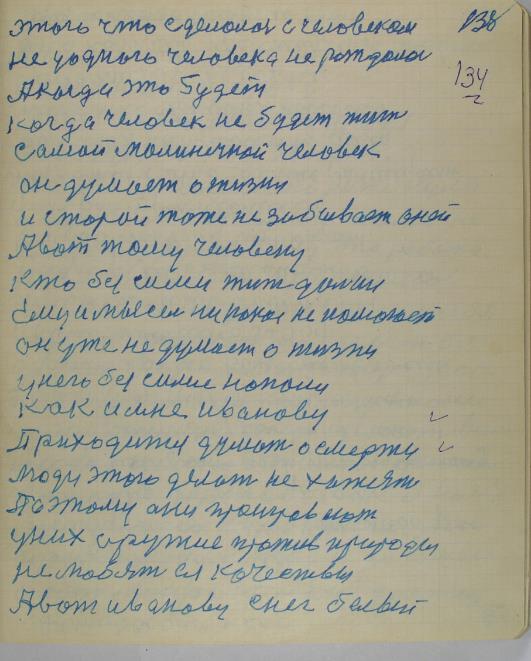 138
этого что сделолос с человеком
не уодного человека не рождолос
134
А когда это будет
когда человек не будет жит
самой молинечкой человек
он думает о жизни
и старой тоже не забывает о ней
А вот тому человеку
кто без силы жит должин
ему и мысел никокая не поможет
он уже не думает о жизни
у него без силие нополи
как и мне иванову
Приходитца думат о смерти
люди этого делат не хотят
Поэтому они проигрывают
у них оружие против природы
не любят ея качествы
А вот иванову снег белый